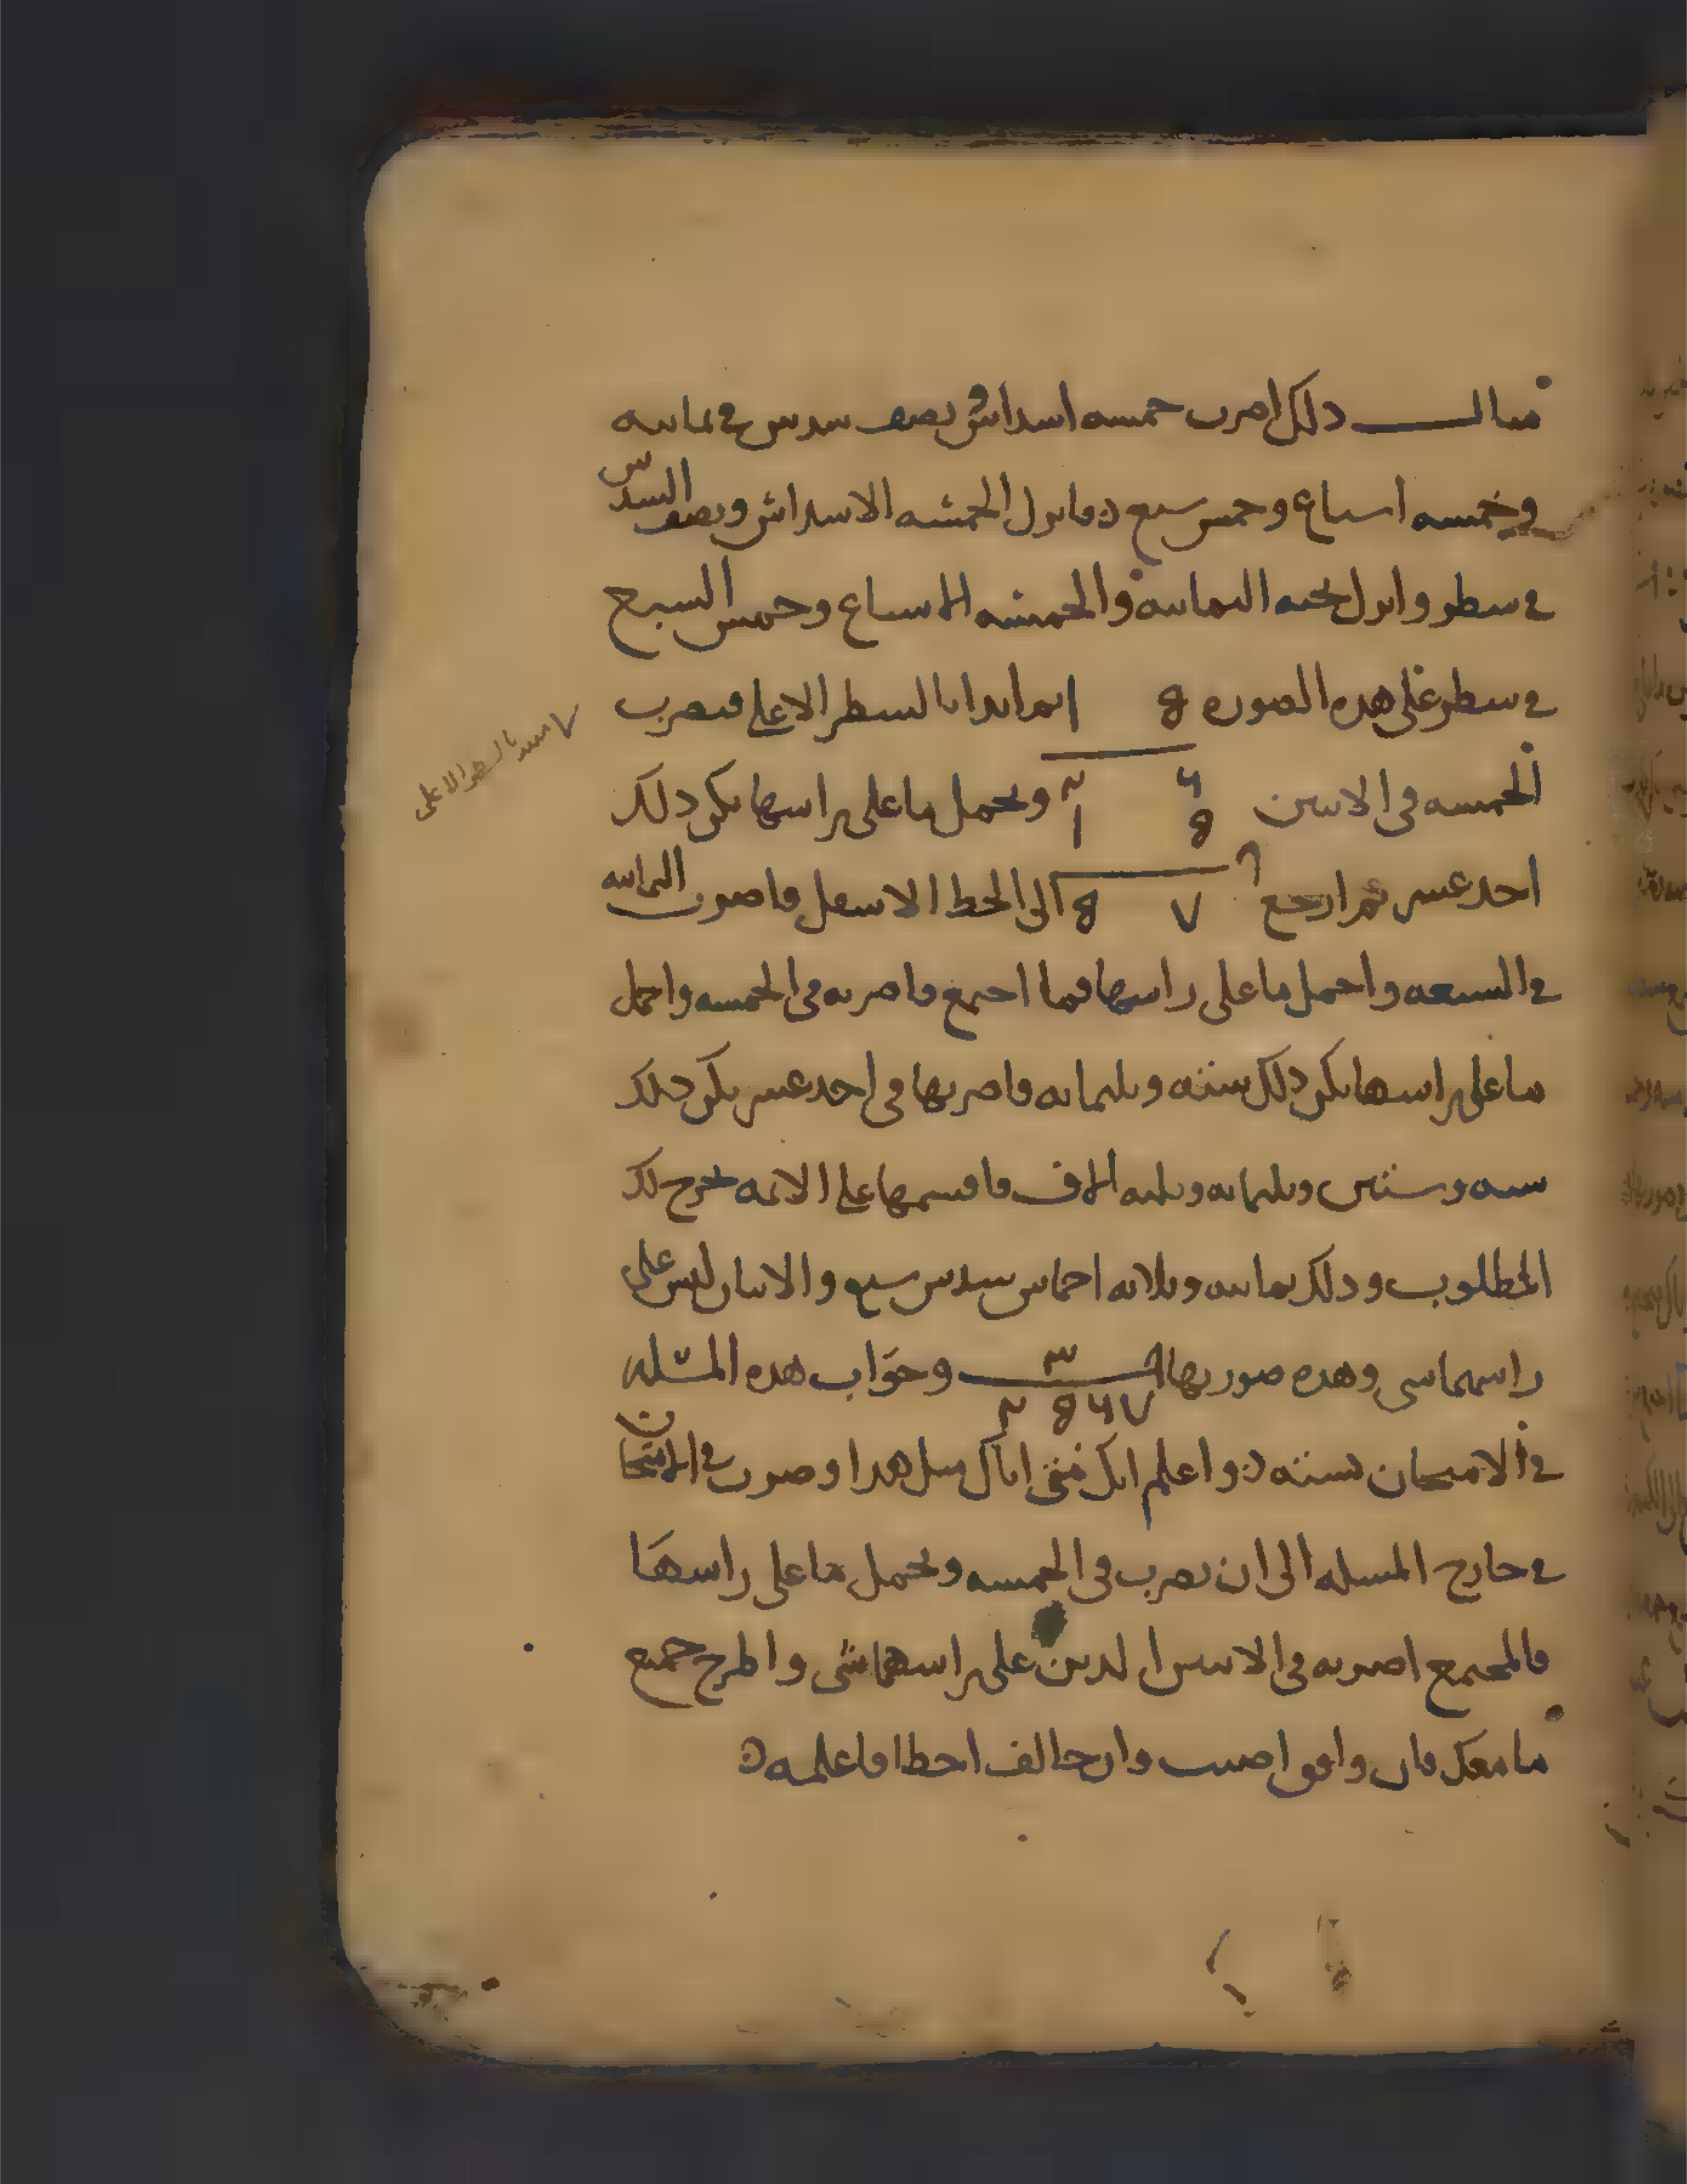 مثال ذلك اضرب خمسه اسداس ونصف سدس في ثمانيه
وخمسه اسباع وخمس سبع فانزل الخمسه الاسداس ونصف السدس
في سطر وانزل تحته الثمانيه والخمسه الاسباع وخمس السبع
في سطر على هذه الصوره ٥ ١ ثم ابدا بالسطر الاعلى فتضرب
الخمسه في الاثنين ٦ ٢ وتحمل ما على راسها يكن ذلك
٥ ١
احد عشر ثم ارجع ٨ ٧ ٥ الى الخط الاسفل فاضرب الثمانيه
في السبعه واحمل ما على راسها فما اجتمع فاضربه في الخمسه واحمل
ما على راسها يكن ذلك سته وثلثمائه فاضربها في احد عشر يكن ذلك
سته وستين وثلثمائه وثلثه الاف فاقسمها على الائمه يخرج لك
المطلوب وذلك ثمانيه وثلاثه اخماس سدس سبع والاثنان ليس على
راسهما شي وهذه صورتها ٨ ٣ وجواب هذه المسئله
٧ ٦ ٥ ٢
في الامتحان سته واعلم انك متى اتاك مثل هذا وصرت في الامتحان
في خارج المسله الى ان تضرب في الخمسه وتحمل ما على راسها
فالمجتمع اضربه في الاثنين الذين على راسهما شي واطرح جميع
ما معك فان وافق اصبت وان خالف اخطا فاعلمه